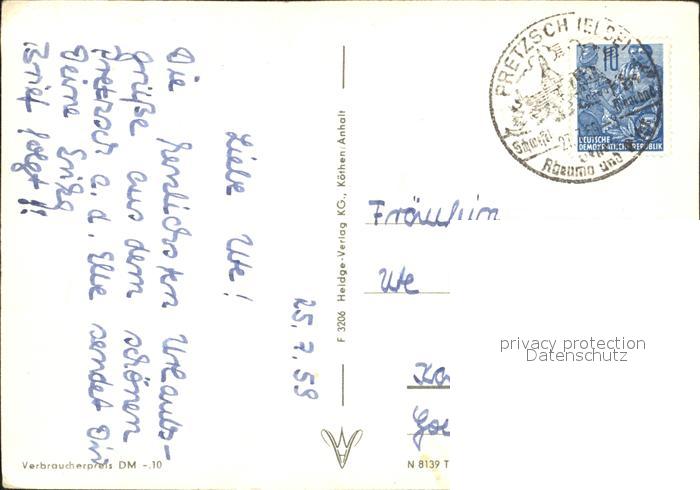 25.7.59
Liebe Ute!
Die herzlichsten Urlaubs-
grüße aus dem schönen
Pretzsch a. d. Elbe sendet Dir
Deine
Brief folgt!!
Verbraucherpreis DM -.10
F 3206 Heldge-Verlag KG., Köthen/Anhalt
PRETZSCH (ELBE)
Rheuma und
10
DEUTSCHE
DEMOKRATISCHE REPUBLIK
Fräulein
Ute
privacy protection
Datenschutz
N 8139 T